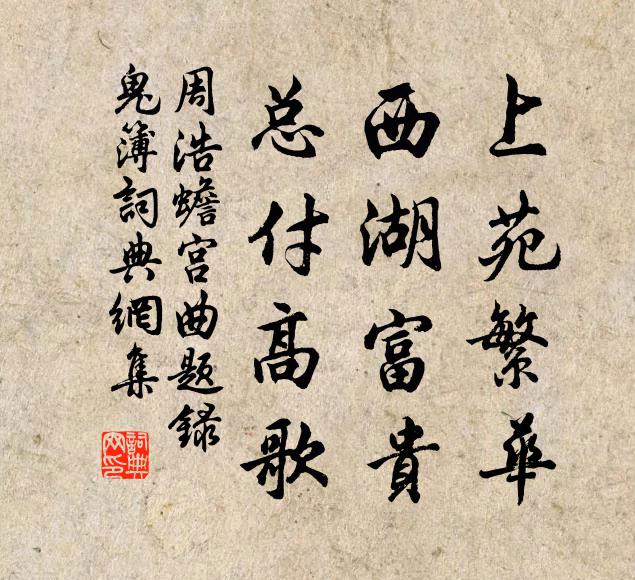 上苑繁華
西湖富貴
总付高歌
周浩蟾宫曲题録
鬼簿詞典網集
詞典
网印